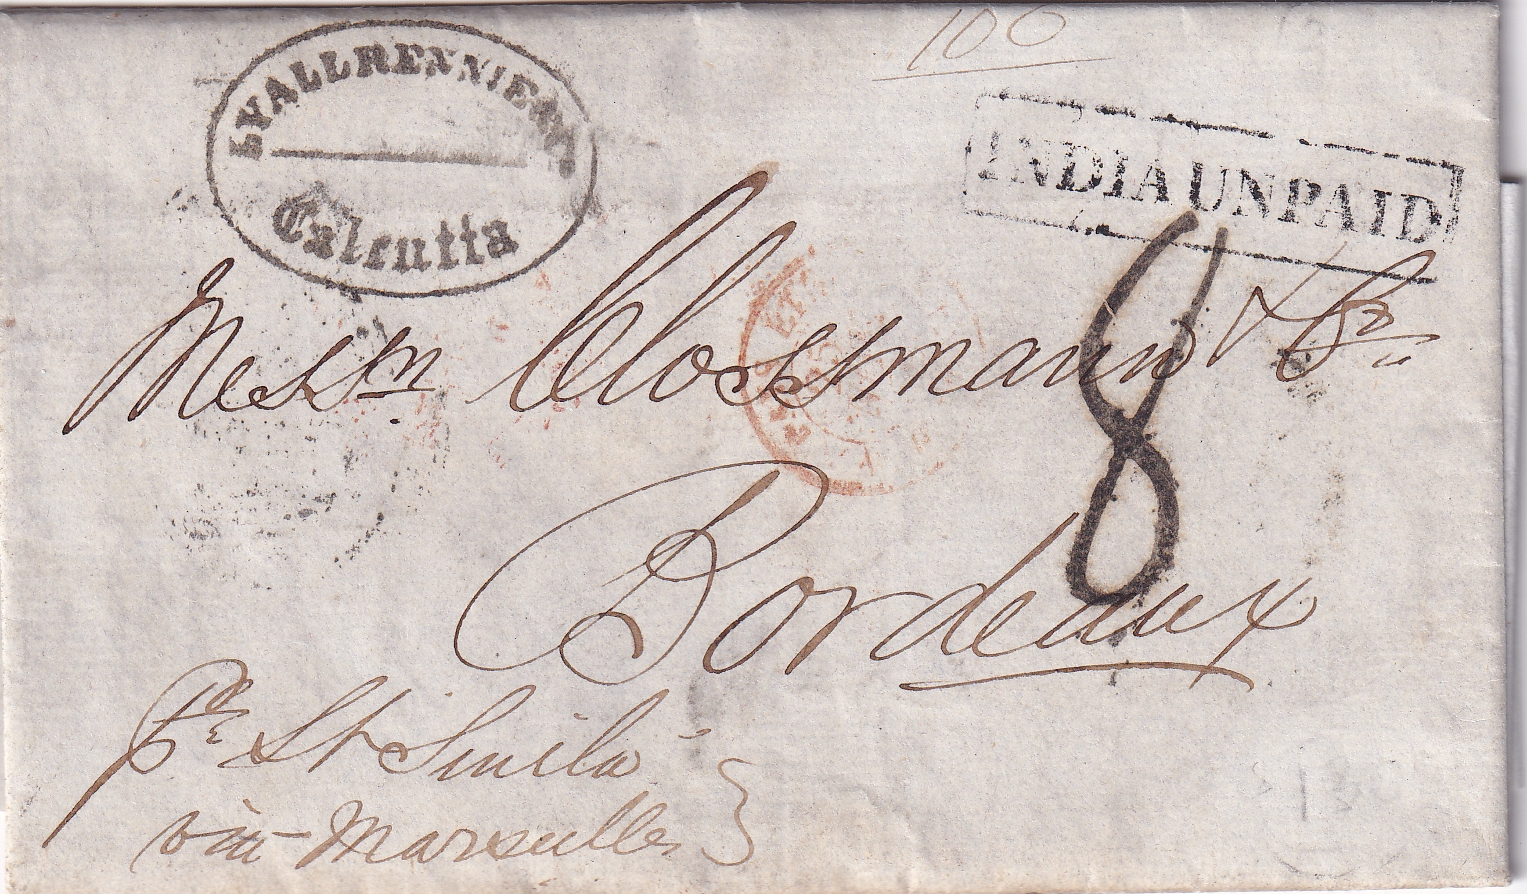 106
LYALL RENNIE & Co
Calcutta
INDIA UNPAID
Messrs Clossmann & Co
8
Bordeaux
pr St
via Marseilles